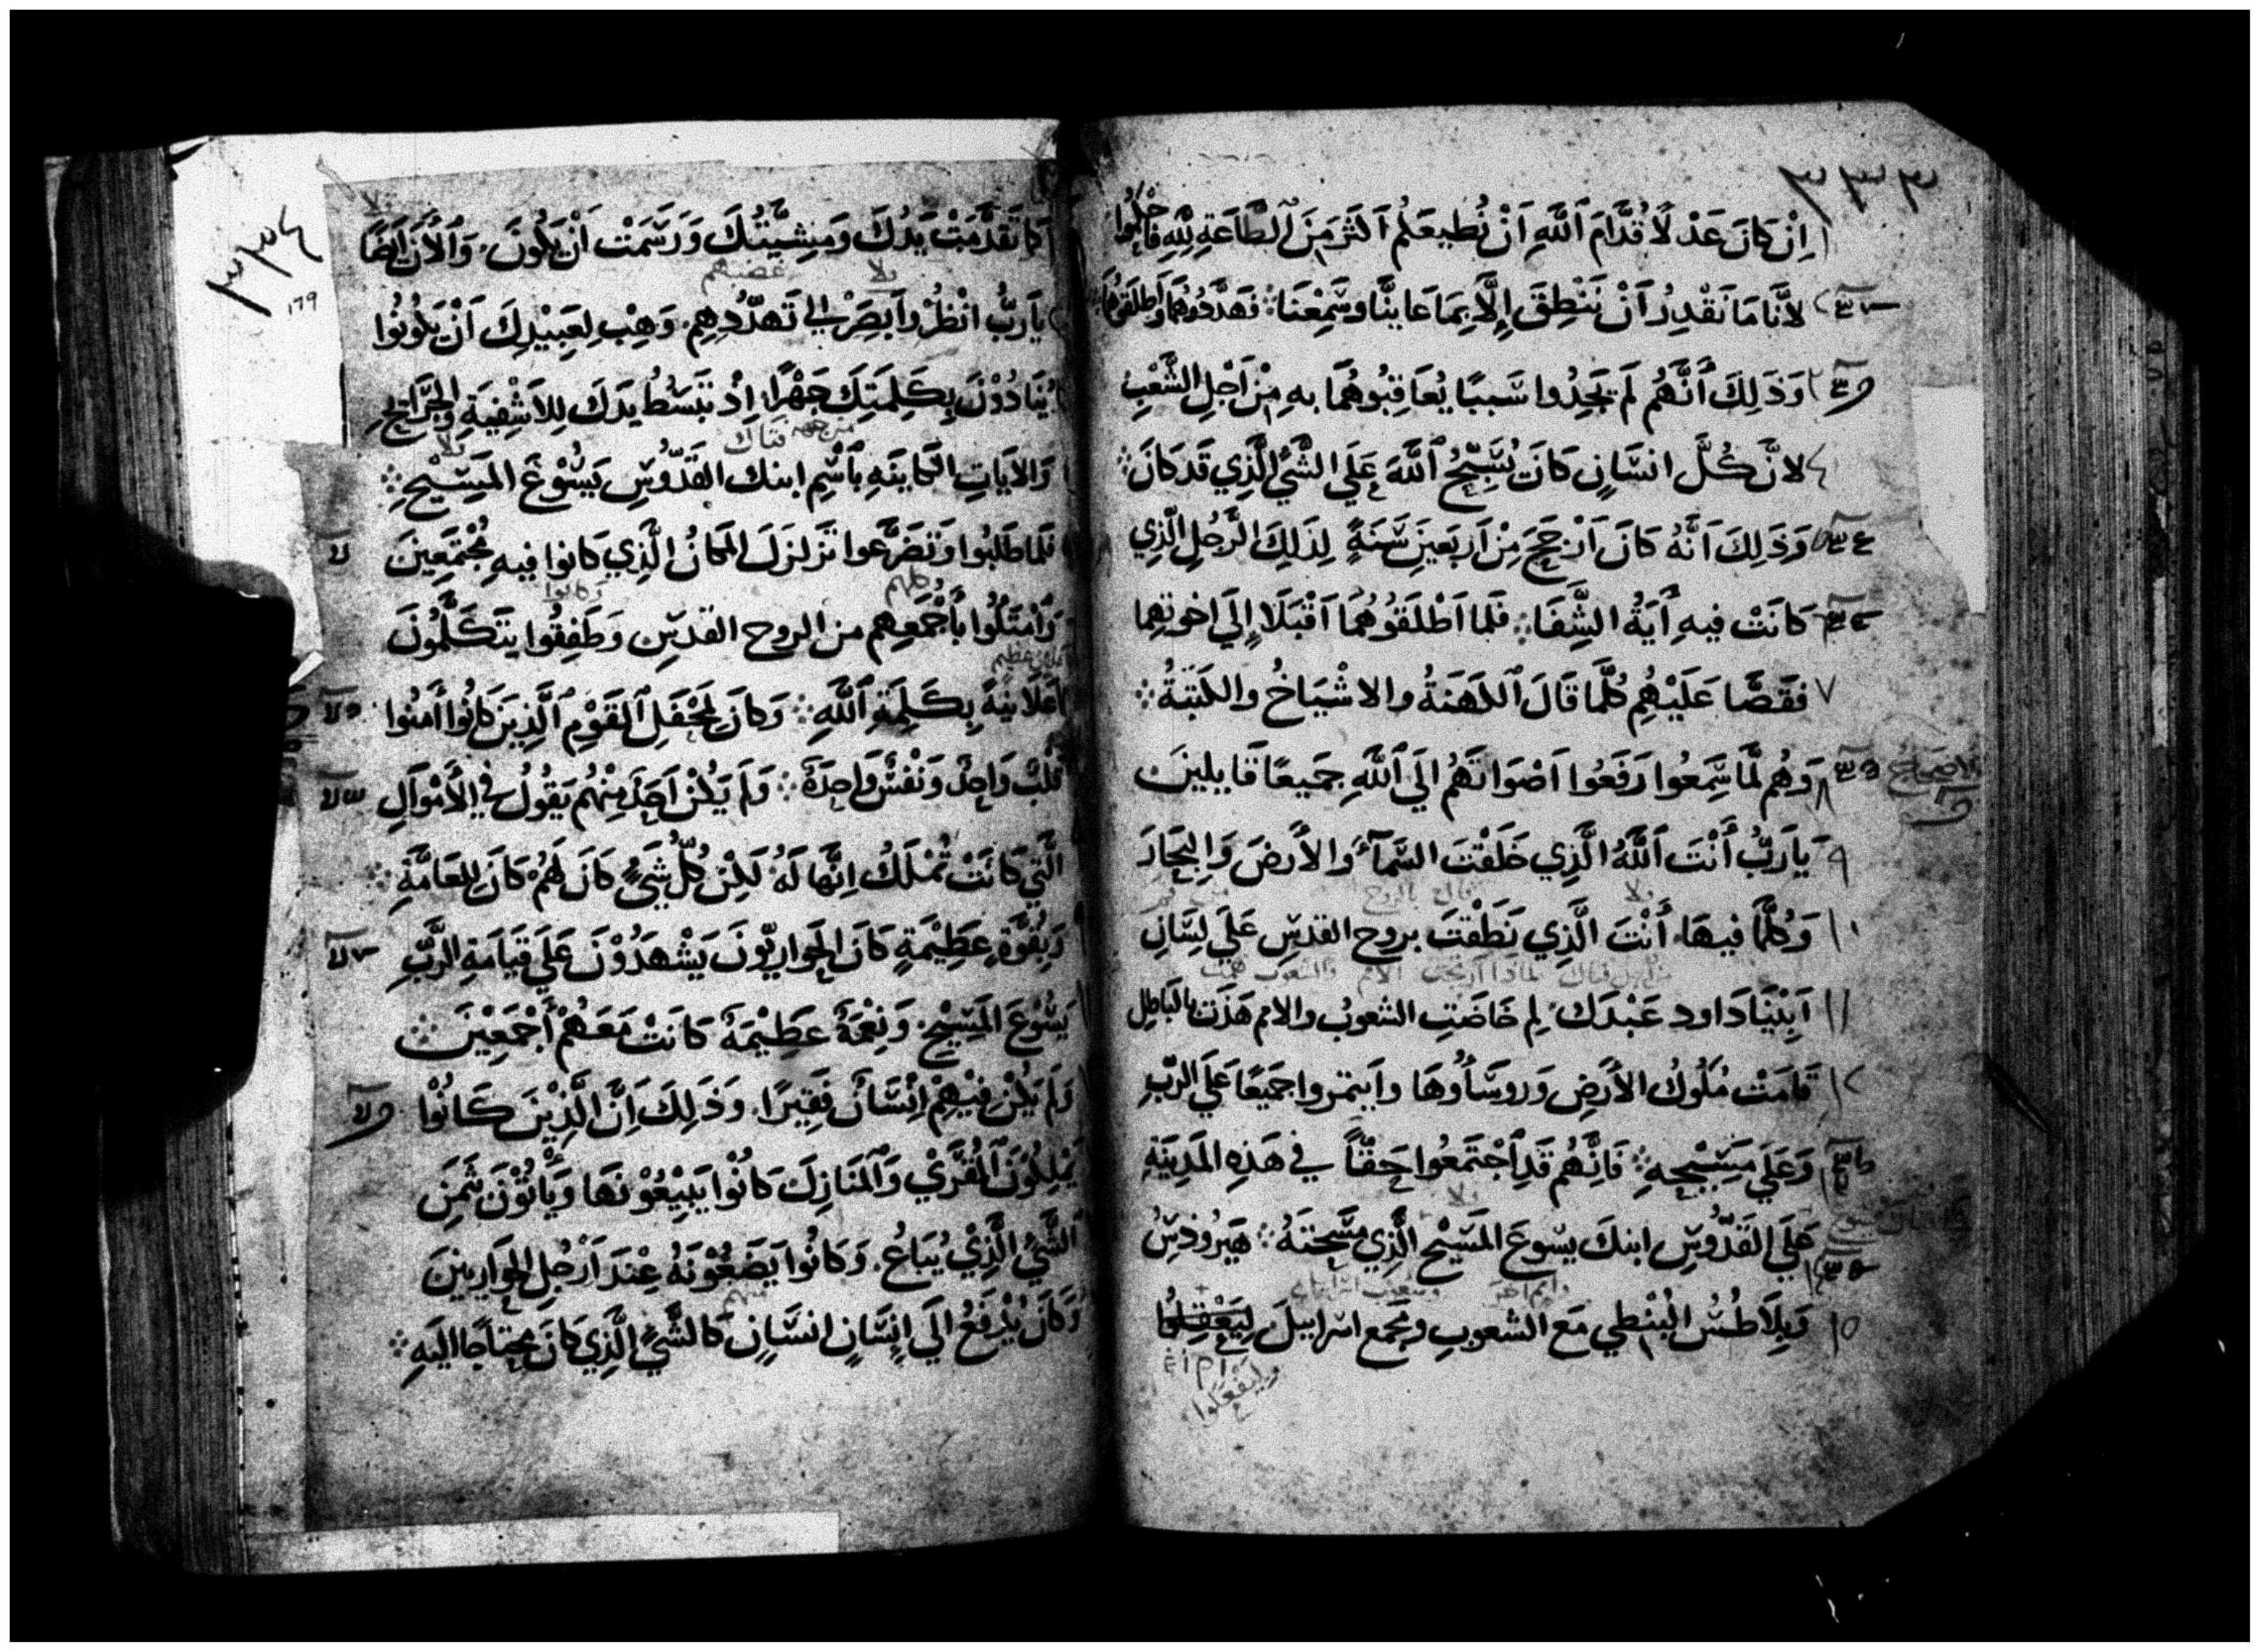 ٣٣٣
اِنْ كَانَ عَدْلاً قُدَّامَ اَللَّهِ اَنْ نُطِيعَكُم اَكثَر مِنَ اَلطَّاعَةِ لِلَّهِ فَاحْكُمُوا
لاَنَّنَا مَا نَقْدِرُ اَنْ نَنْطِقَ اِلَّا بِمَا عَايَنَّا وسَمِعْنَا ۞ فَهَدَّدُوهُمَا وَاَطلَقُوهُمَا
وَذَلِكَ أَنَّهُم لَم يَجِدُوا سَببًا يُعَاقِبُوهُمَا بِهِ مِنْ اَجْلِ الشَّعْبِ
لاَنَّ كُلَّ انسَانٍ كَانَ يُسَبِّحُ اَللَّهَ عَلَى الشَّيْ الَّذِي قَد كَانَ ۞
وَذَلِكَ اَنَّهُ كَانَ اَرْجَحَ مِنْ اَربَعِينَ سَنَةً لِذَلِكَ الرَّجُلِ الَّذِي
كَانَتْ فِيهِ أَيَةُ الشِّفَا ۞ فَلَما اَطْلَقُوهُمَا اَقْبَلَا إِلَي اخوتِهِما
٧ فَقَصَّا عَلَيْهُم كُلَّمَا قَالَ اَلكَهَنَةُ والاشْيَاخُ والكَتَبَةُ ۞
٨ وَهُم لَمَّا سَمِعُوا رَفَعُوا اَصْوَاتَهُم اِلَي اَللَّهِ جمِيعًا قَايلِينَ
الاصحاح
٩ يَا رَبُّ أَنْتَ اَللَّهُ الَّذِي خَلَقْتَ السَّمآءَ والأَرضَ وَالبِحَارَ
١٠ وَكُلَّمَا فيهَا أَنْتَ الَّذِي نَطَقْتَ بروح القدسِ عَلَي لِسَانِ
لماذا ارتجت الامم والشعوب همت
١١ اَبِيْنَا دَاود عَبْدَك لِم خَاضَتِ الشعوبُ والامم هَذَت بالبَاطِلِ
١٢ قَامَتْ مُلُوكُ الأَرضِ وَروسَأُوهَا وايتمروا جَمِيعًا عَلَي الرَّبِّ
وَعَلَي مَسِيْحِهِ ۞ فَانَّهُم قَدِ اَجْتَمَعُوا حَقًّا في هَذِهِ المَدِينَةِ
عَلَي القَدُّوسِ ابنكَ يسوعَ المَسِيْحِ الَّذِي مَسَحْتَهُ ۞ هَيرُودِسُ
١٥ وَبِلَاطُسُ البُنْطِي مَع الشعوبِ وَجَمعِ اسرَاييلَ لِيَعْقِلُوا
وليفعلوا
٣٣٤
١٦٩
كَمَا تَقَدَّمَتْ يَدُكَ وَمَشِيَّتُكَ وَرَسَمَتْ اَنْ يَكُونَ وَالأَن اَيضًا
غضبهم
يَا رَبُّ انْظُرْ وَاَبصِرْ اِلي تَهدُّدِهِم وَهِبْ لِعَبِيْدِكَ اَنْ يَكُونُوا
يُنَادُوْنَ بِكَلِمَتِكَ جَهْرًا اِذْ تَبْسُطُ يَدَكَ لِلاَشْفِيَةِ وَالجَرَايحِ
والايَاتِ الكَاينَهِ بِاَسْمِ ابنك القَدُّوسِ يَسُوْعَ المَسِيْحِ ۞
فَلما طَلبُوا وَتَضَرَّعوا تَزلزَلَ المَكانُ الَّذِي كَانوا فِيهِ مُجْتَمِعِينَ
كلهم وكانوا
وَاَمْتَلُوا بِأَجْمَعِهِم من الروح القدسِ وَطَفِقُوا يَتَكَلَّمُونَ
اَعْلَانِيَةً بِكَلِمَةِ اَللَّهِ ۞ وَكانَ لِمَحْفَلِ اَلقَوْمِ اَلَّذِينَ كَانُوا أَمَنُوا
قَلْبٌ وَاحِدٌ وَنَفْسٌ وَاحِدَةٌ ۞ وَلَم يَكُنْ اَحَدٌ مِنْهُم يَقُولُ في الأَمْوَالِ
الَّتِي كَانَتْ تُمْلَكُ اِنَّهَا لَهُ لَكِنْ كُلُّ شَيءٍ كَانَ لَهُم كَانَ لِلعَامَّةِ ۞
وَبِقُوَّةٍ عَظِيْمَةٍ كَانَ الحَوارِيّونَ يَشْهَدُوْنَ عَلَي قِيَامَةِ الرَّبِّ
يَسُوْعَ المَسِيْحِ وَنِعْمَةٌ عَظِيْمَةٌ كَانَتْ مَعَهُمْ أَجْمَعِيْنَ ۞
وَلَم يَكُنْ فِيْهِمْ اِنْسَانٌ فَقِيرًا وَذَلِكَ اَنَّ الَّذِيْنَ كَانُوْا
يَمْلِكُونَ القُرَيْ وَالمَنَازِلَ كَانُوْا يَبِيْعُوْنَهَا وَيَأْتُوْنَ بِثَمَنِ
الشَّيْ الَّذِيْ يُبَاعُ وَكَانُوْا يَضَعُوْنَهُ عِنْدَ اَرْجُلِ الحَوَارِيينَ
وَكَانَ يُدْفَعُ اِلَي اِنْسَانٍ انسَانٍ كَالشَّيِ الَّذِي كَانَ مُحتَاجًا اليَهِ ۞